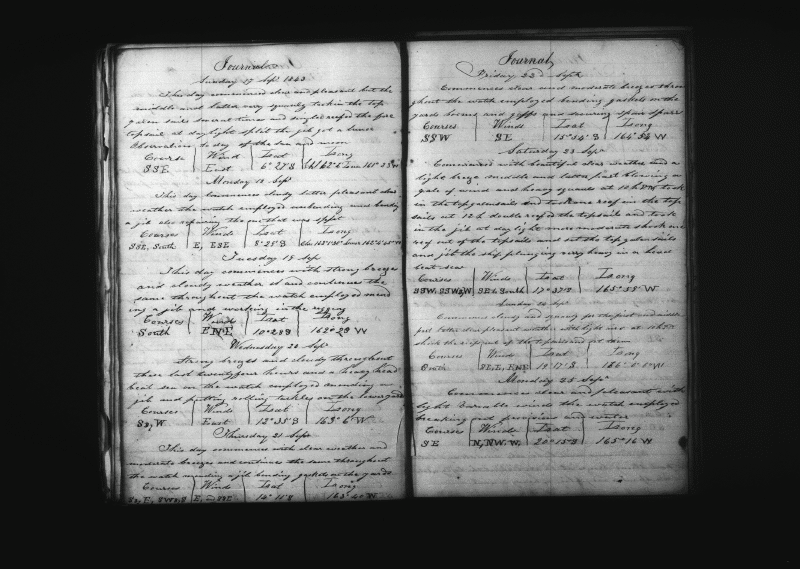 Journal
Sunday 17 Sept 1843
This day commenced clear and pleasant but the
middle and latter very squally took in the top
galan sails several times and single reefed the fore
topsail at daylight split the jib got a lunar
Observation to day of the sun and moon
Course Wind Lat Long
SSE East 6° 27 S
Monday 18 Sept
This day commences cloudy latter pleasant clear
weather the watch employed unbending and bending
a jib also repairing the one that was split
Courses Winds Lat Long
SSE, South E, ESE 8° 25 S
Tuesday 19 Sept
This day commences with strong breezes
and cloudy weather and continues the
same throughout the watch employed mend
ing a jib and working in the rigging
Courses Winds Lat Long
South ENE 10° 28 S 162° 29 W
Wednesday 20 Sept
Strong breezes and cloudy throughout
these last twentyfour hours and a heavy head
beat sea on the watch employed mending a
jib and putting rolling tackles on the lower yards
Courses Winds Lat Long
So, W East 12° 35 S 163° 6 W
Thursday 21 Sept
This day commences with clear weather and
moderate breezes and continues the same throughout
the watch mending a jib bending gaskets on the yards
Courses Winds Lat Long
14° 11 S 163° 40 W
Journal
Friday 22d Sept
Commences clear and moderate breezes throu
ghout the watch employed bending gaskets on the
yards booms and gaffs and securing spare spars
Courses Winds Lat Long
SSW SE 15° 54 S 164° 34 W
Saturday 23 Sept
Commences with beautiful clear weather and a
light breeze middle and latter part blowing a
gale of wind and heavy squalls at 10 took
in the topgalansails and took one reef in the top
sails at 12 h double reefed the topsails and took
in the jib at daylight more moderate shook one
reef out of the topsails and set the topgalan sails
and jib the ship plunging very heavy in a head
beat sea
Courses Winds Lat Long
SSW, SSW½W SE & South 17° 37 S 165° 58 W
Sunday 24 Sept
Commences cloudy and squally for the first and middle
part latter clear pleasant weather
shook the reefs out of the topsails and set them
Courses Winds Lat Long
South SE, E, ENE
Monday 25 Sept
Commences clear and pleasant with
light variable winds the watch employed
breaking out provisions and water
Course Winds Lat Long
SE N, NW, W, 20° 15 S 165° 16 W